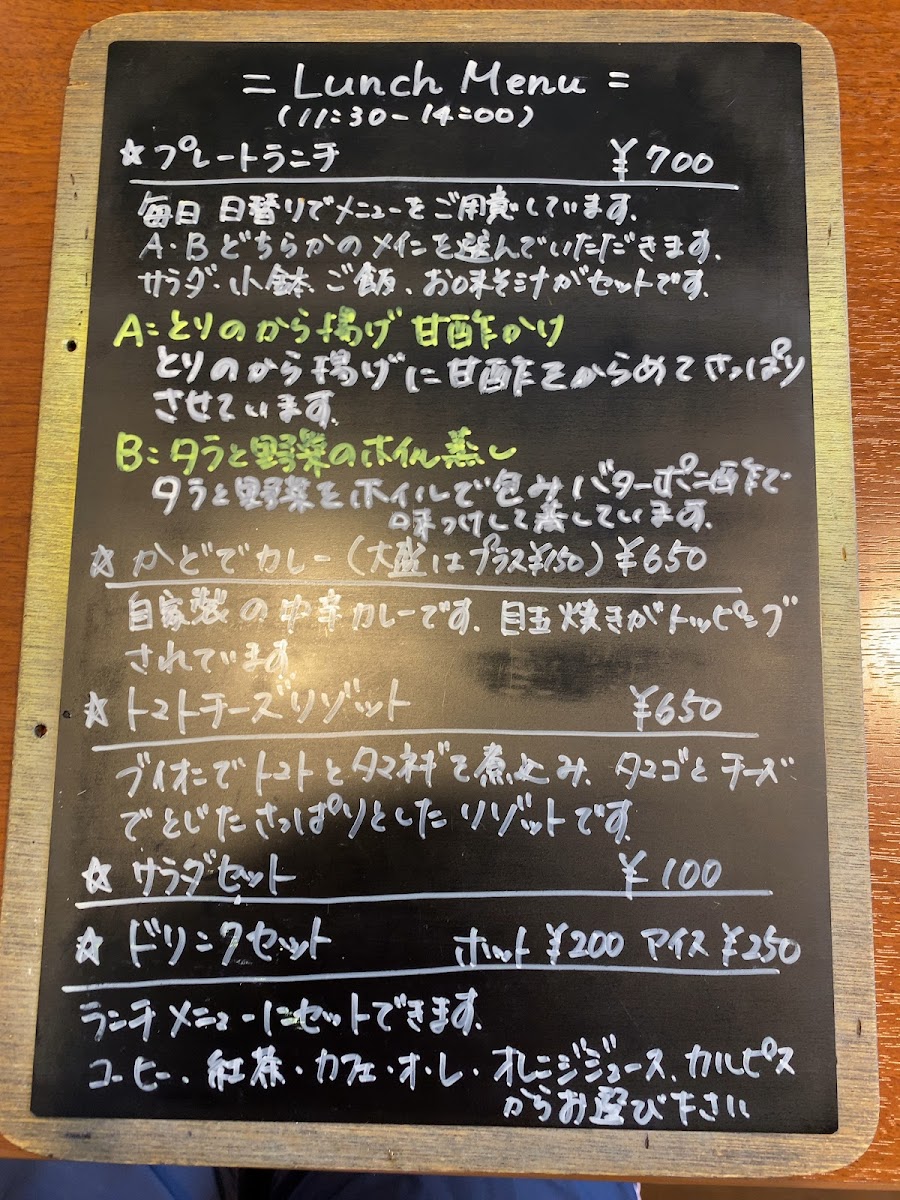 = Lunch Menu =
(11:30-14:00)
☆プレートランチ ¥700
毎日 日替りでメニューをご用意しています。
A・Bどちらかのメインを選んでいただきます。
サラダ・小鉢、ご飯、お味そ汁がセットです。
A=とりのから揚げ 甘酢かけ
とりのから揚げに甘酢をからめてさっぱり
させています。
B=タラと野菜のホイル蒸し
タラと野菜をホイルで包みバターポン酢で
味つけして蒸しています。
☆かどでカレー(大盛はプラス¥150) ¥650
自家製の中辛カレーです。目玉焼きがトッピング
されています。
☆トマトチーズリゾット ¥650
ブイオンでトマトとタマネギを煮込み、タマゴとチーズ
でとじたさっぱりとしたリゾットです。
☆サラダセット ¥100
☆ドリンクセット ホット¥200 アイス¥250
ランチメニューにセットできます。
コーヒー・紅茶・カフェ・オ・レ・オレンジジュース、カルピス
からお選び下さい